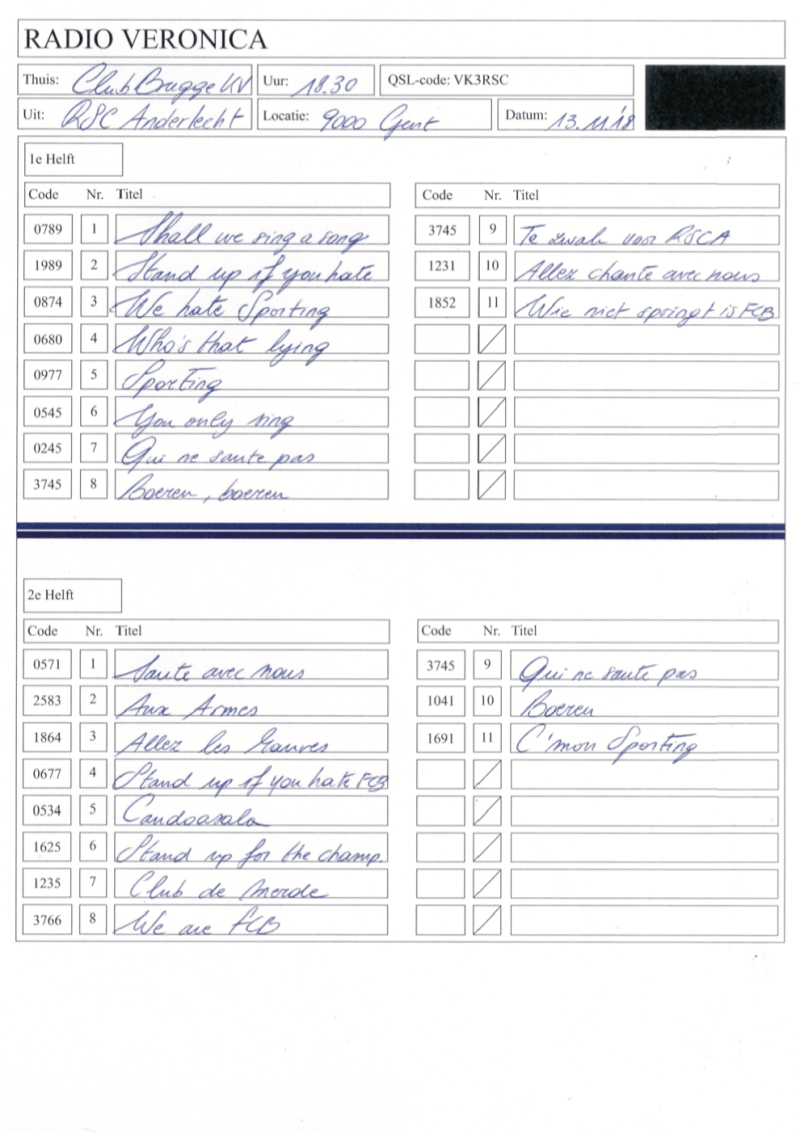 RADIO VERONICA
Thuis: Club Brugge KV Uur: 18.30 QSL-code: VK3RSC
Uit: RSC Anderlecht Locatie: 9000 Gent Datum: 13.11.'18
1e Helft
Code Nr. Titel
0789 1 Shall we sing a song
1989 2 Stand up if you hate
0874 3 We hate Sporting
0680 4 Who's that lying
0977 5 Sporting
0545 6 You only sing
0245 7 Qui ne saute pas
3745 8 Boeren, boeren
Code Nr. Titel
3745 9 Te zwak voor RSCA
1231 10 Allez chante avec nous
1852 11 Wie niet springt is FCB
2e Helft
Code Nr. Titel
0571 1 Saute avec nous
2583 2 Aux Armes
1864 3 Allez les Mauves
0677 4 Stand up if you hate FCB
0534 5
1625 6 Stand up for the champ.
1235 7 Club de Merde
3766 8 We are FCB
Code Nr. Titel
3745 9 Qui ne saute pas
1041 10 Boeren
1691 11 C'mon Sporting